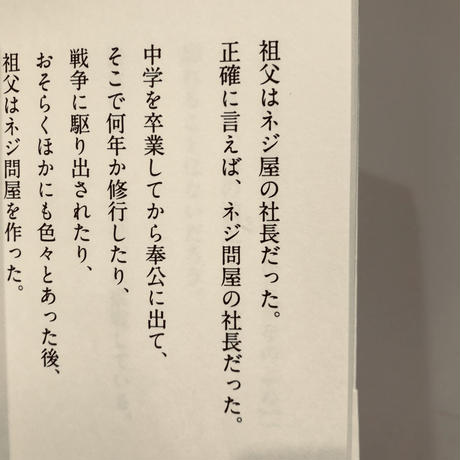 祖父はネジ屋の社長だった。
正確に言えば、ネジ問屋の社長だった。
中学を卒業してから奉公に出て、
そこで何年か修行したり、
戦争に駆り出されたり、
おそらくほかにも色々とあった後、
祖父はネジ問屋を作った。